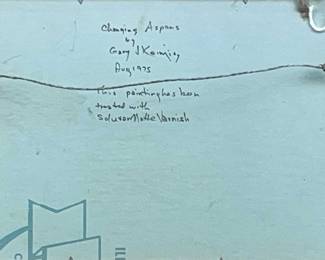 Changing Aspens
by
Gary J
Aug 1975
This painting has been
treated with
Soluvar Matte Varnish